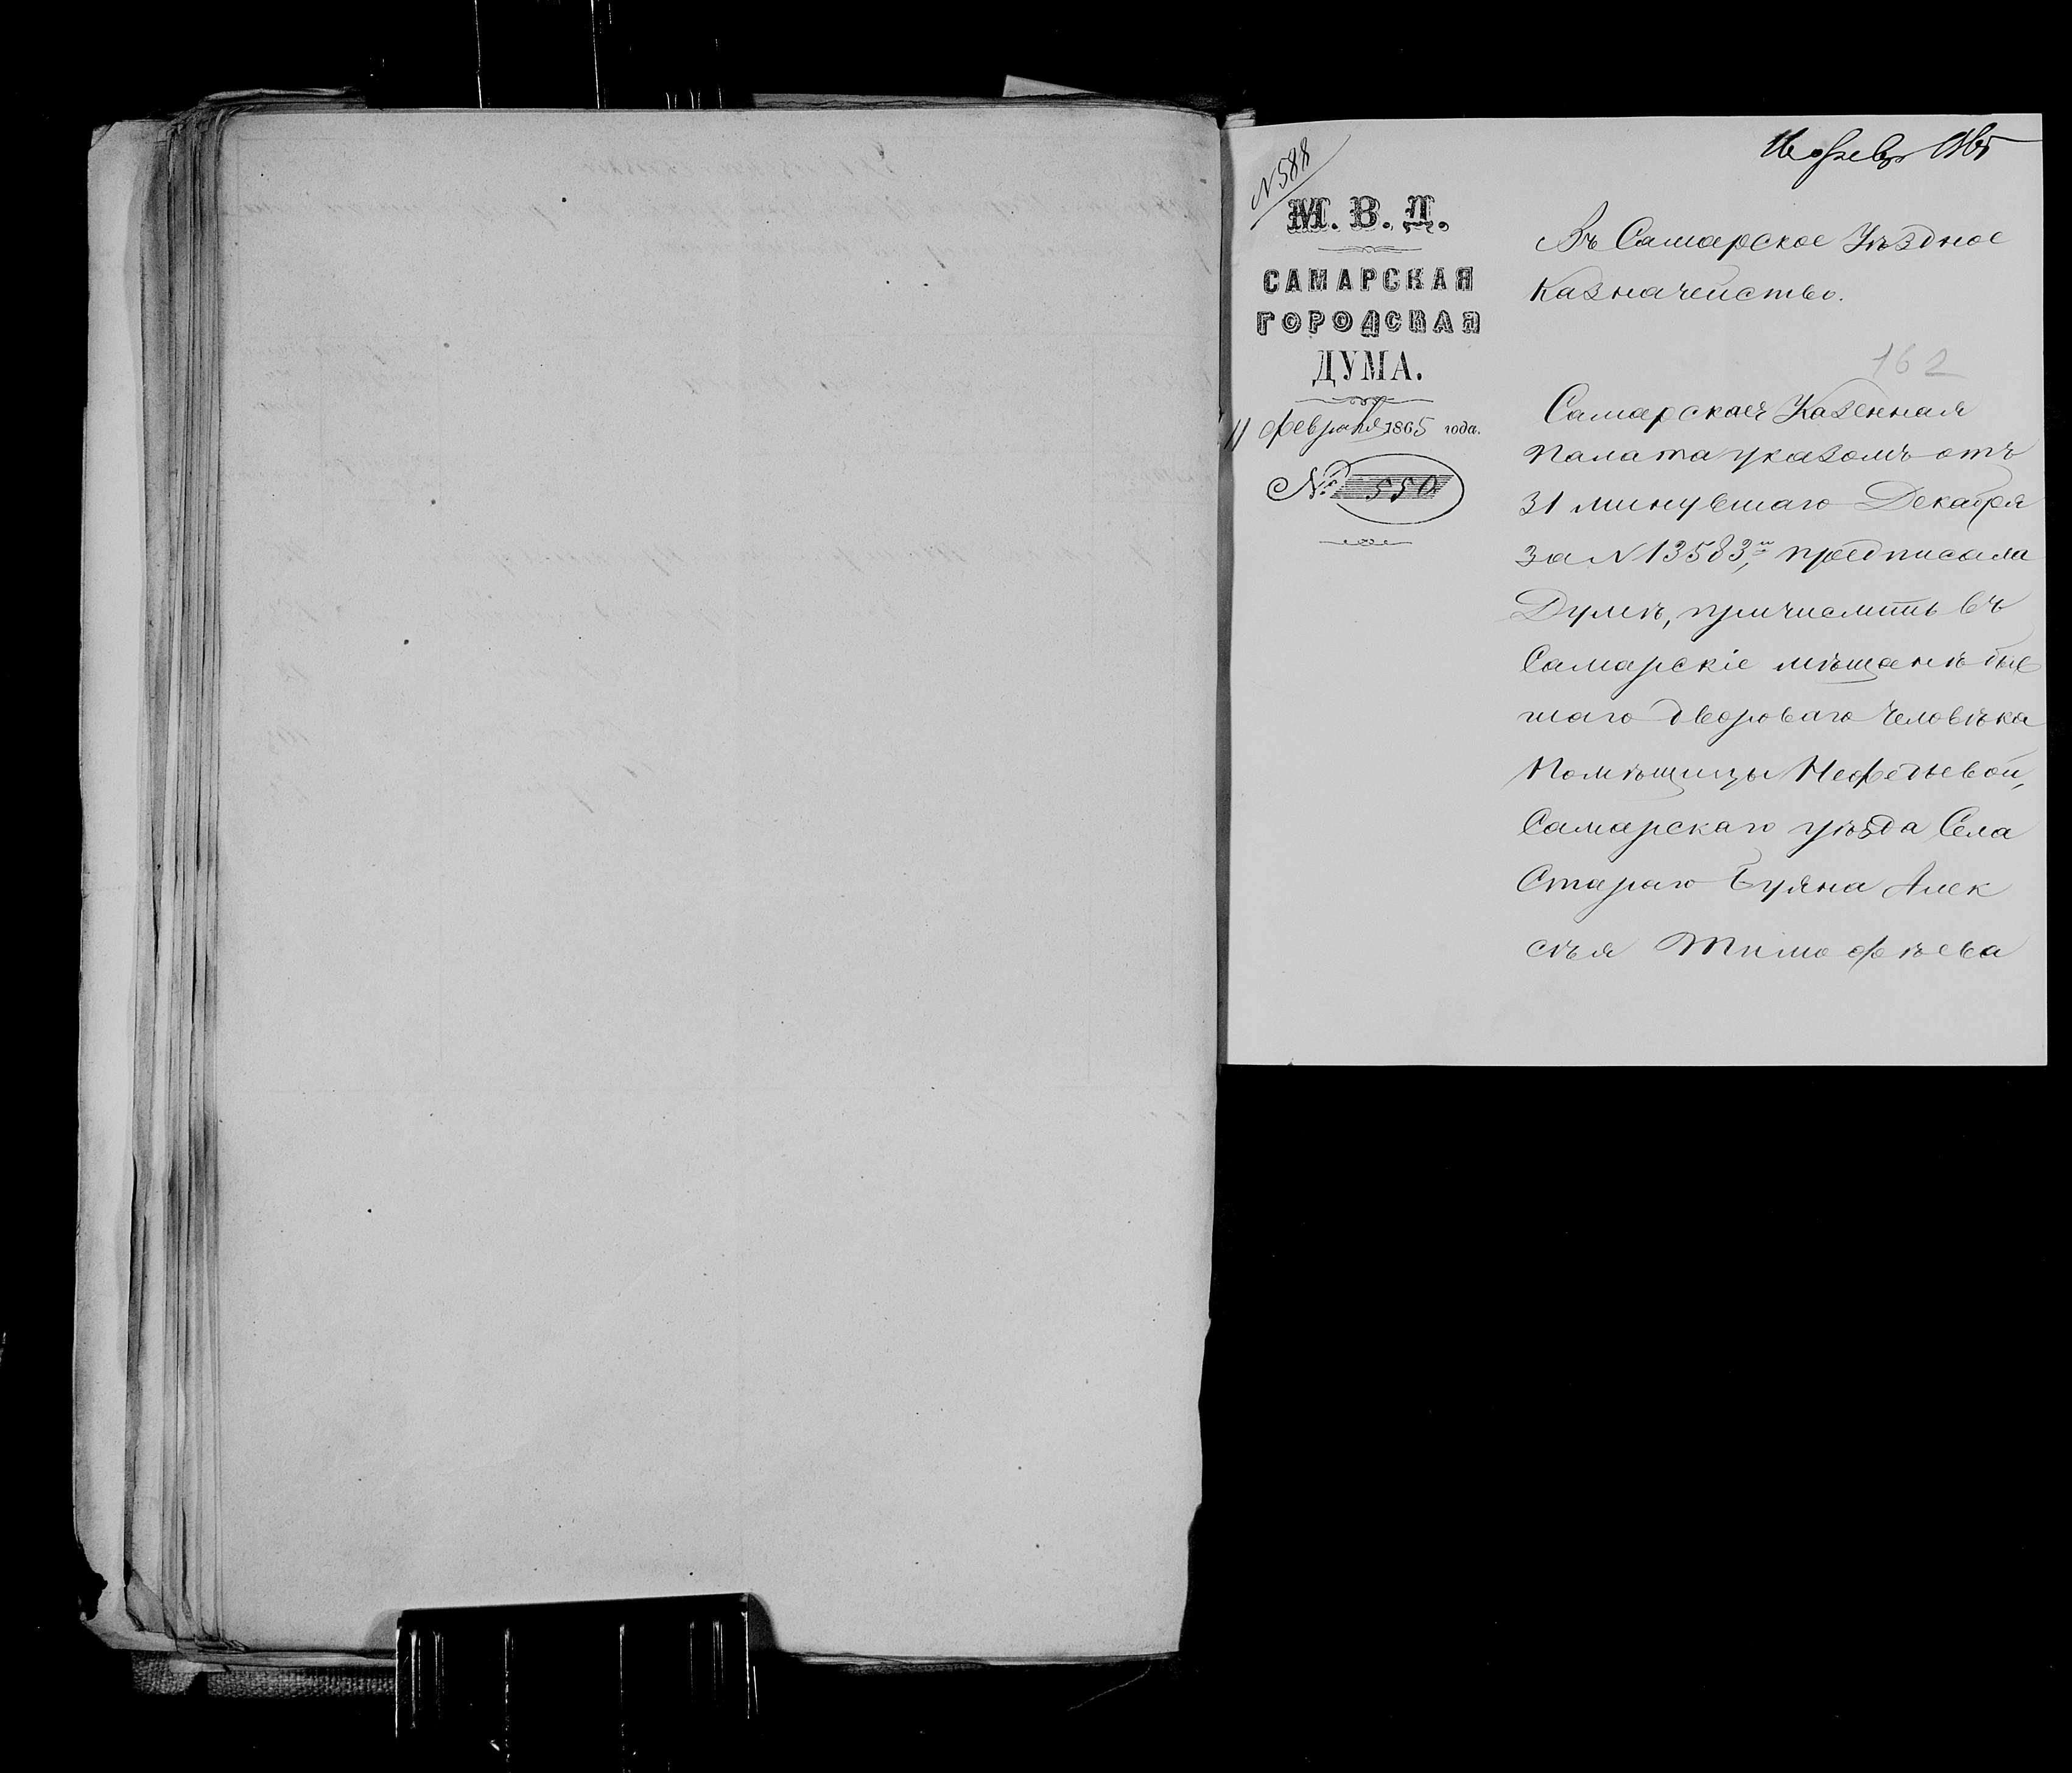 N 588
М. В. Д.
САМАРСКАЯ
ГОРОДСКАЯ
ДУМА.
11 февраля 1865 года.
№ 550
16 февр 1865
Въ Самарское Уѣздное
Казначейство.
162
Самарская Казенная
Палата указомъ отъ
31 минувшаго Декабря
за N 13583,ᵐ предписала
Думѣ, причислить въ
Самарскіе мѣщанѣ быв
шаго двороваго человѣка
Помѣщицы Нефедьевой,
Самарскаго уѣзда Села
Стараго Буяна Алек
сѣя Тимофѣева